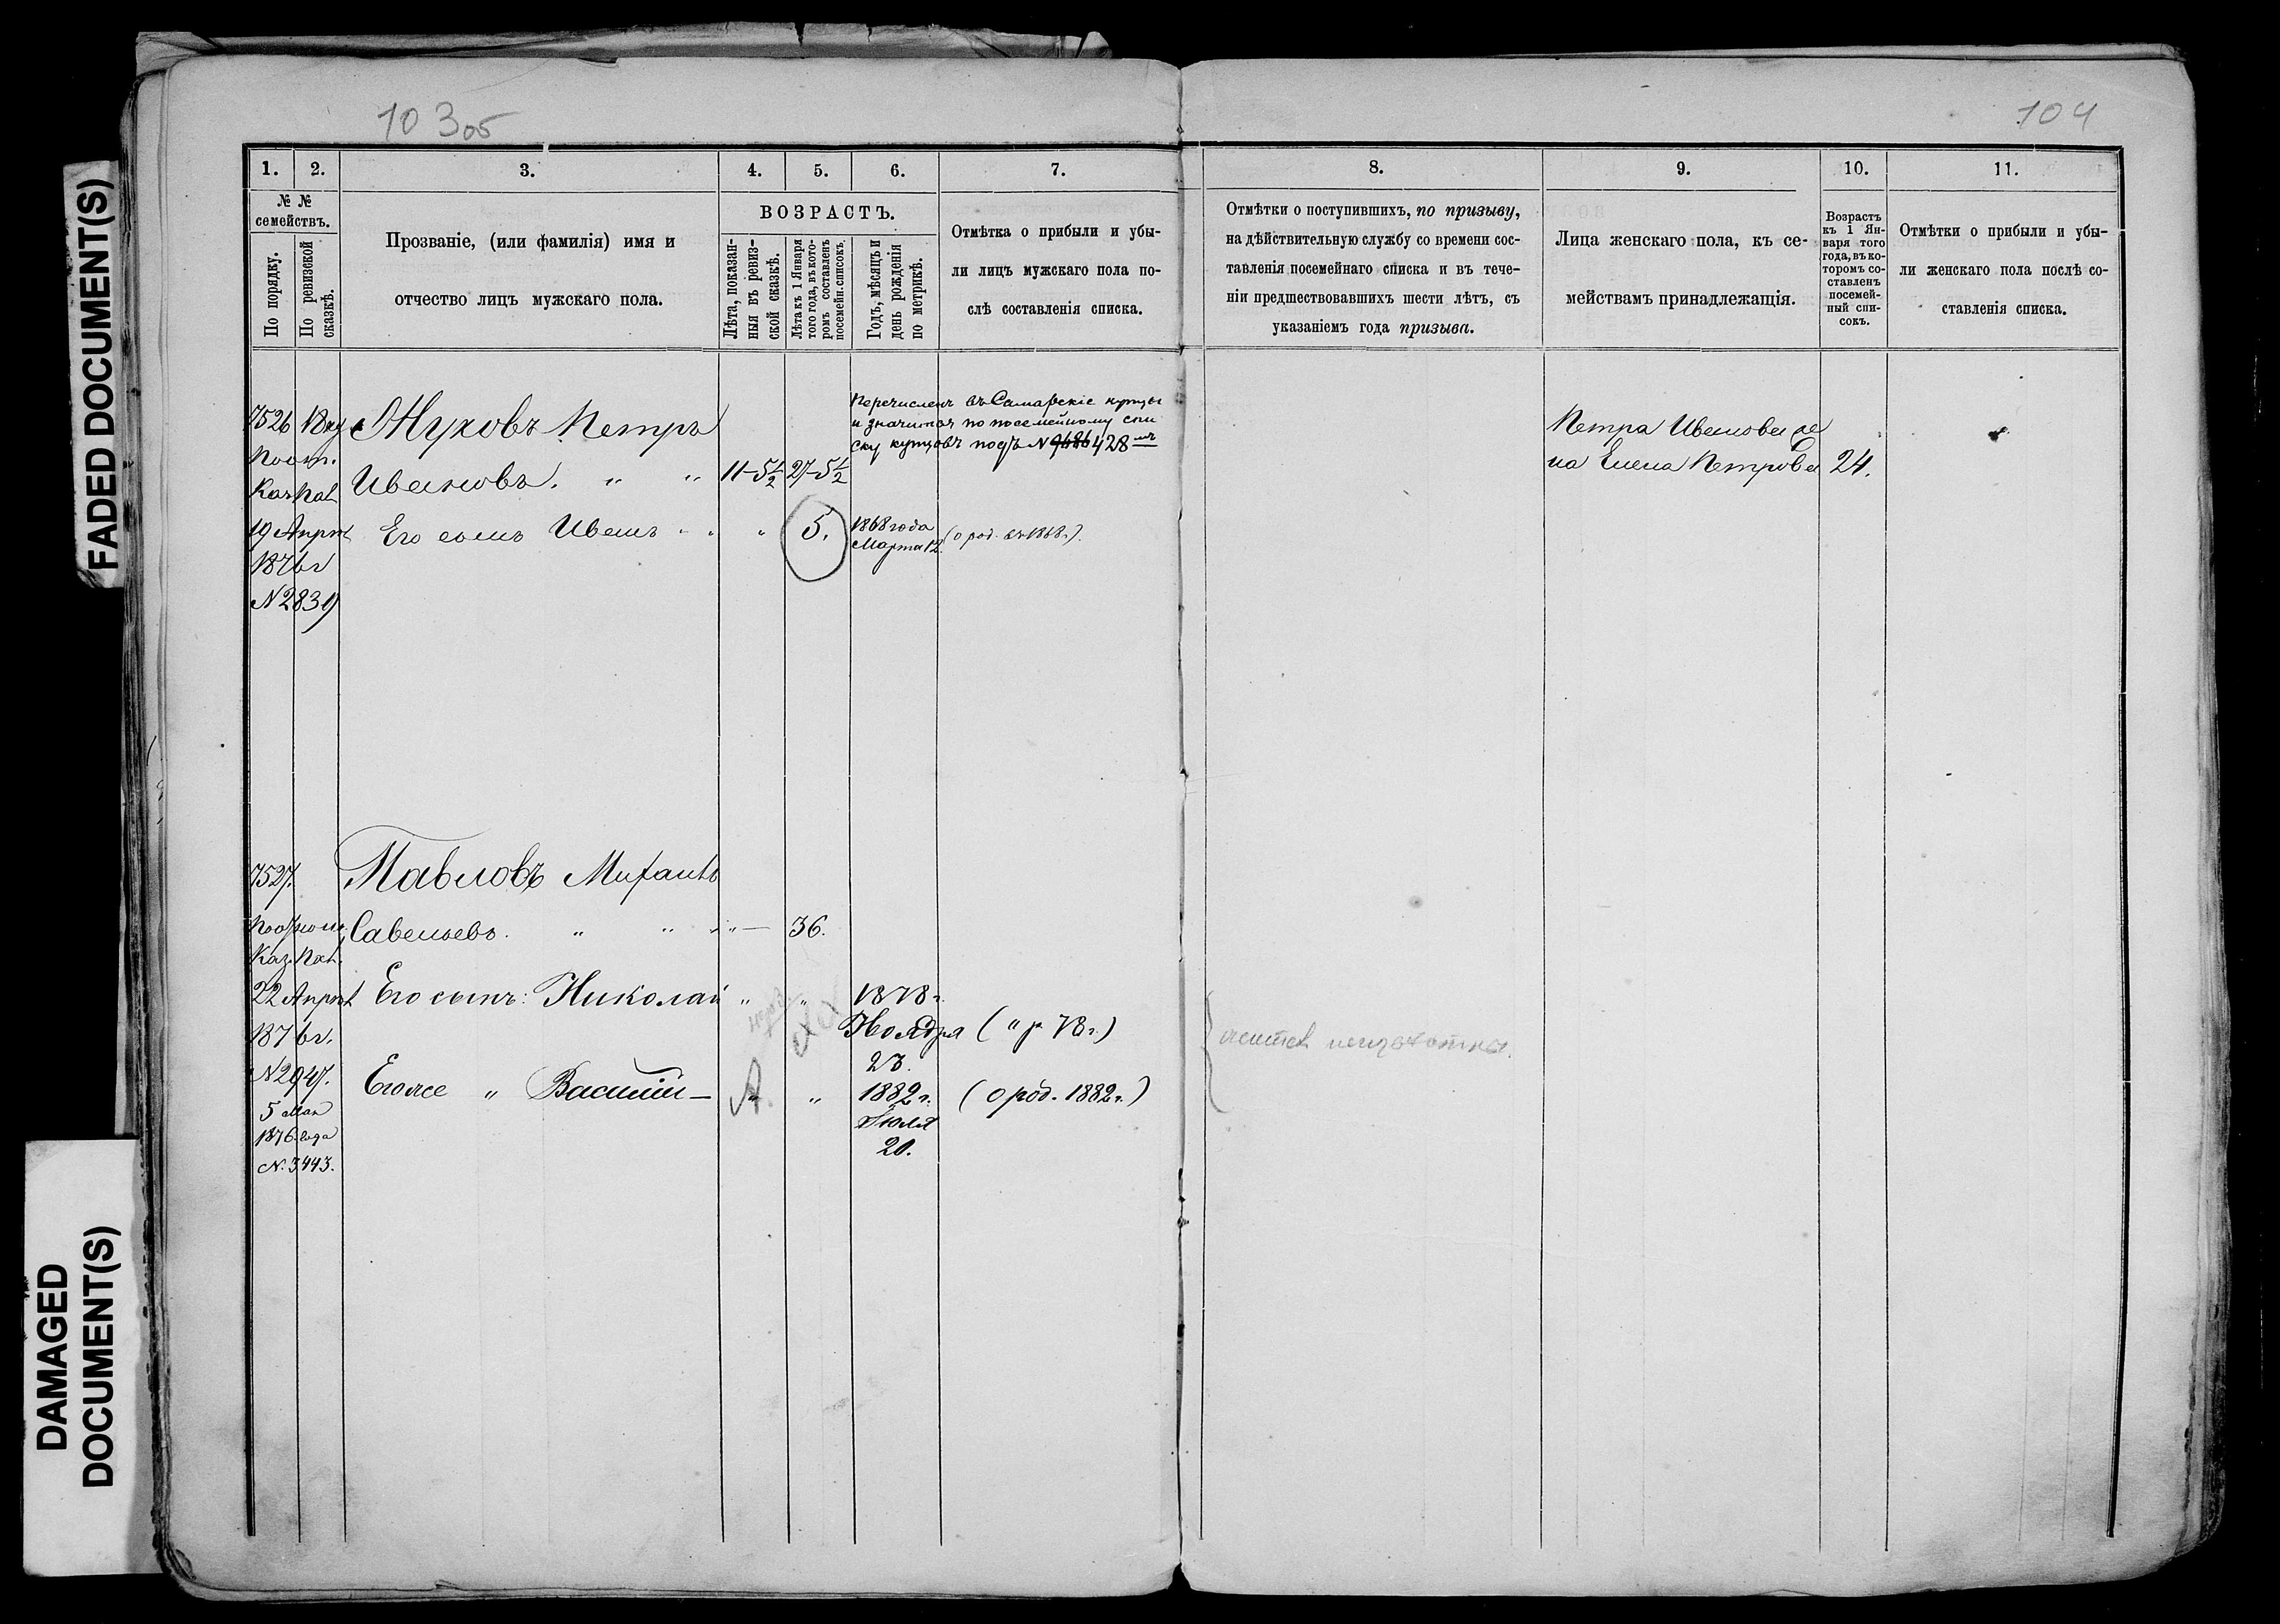 FADED DOCUMENT(S)
DAMAGED
DOCUMENT(S)
10305
104
1.
2.
3.
4.
5.
6.
7.
8.
9.
10.
11.
№ №
семействъ.
По порядку.
По ревизской
сказкѣ.
Прозваніе, (или фамилія) имя и
отчество лицъ мужскаго пола.
ВОЗРАСТЪ.
Лѣта, показан-
ныя въ ревиз-
ской сказкѣ.
Лѣта къ 1 Января
того года, въ кото-
ромъ составленъ
посемейн. списокъ.
Годъ, мѣсяцъ и
день рожденія
по метрикѣ.
Отмѣтка о прибыли и убы-
ли лицъ мужскаго пола по-
слѣ составленія списка.
Отмѣтки о поступившихъ, по призыву,
на дѣйствительную службу со времени сос-
тавленія посемейнаго списка и въ тече-
ніи предшествовавшихъ шести лѣтъ, съ
указаніемъ года призыва.
Лица женскаго пола, къ се-
мействамъ принадлежащія.
Возрастъ
къ 1 Ян-
варя того
года, въ ко-
торомъ со-
ставленъ
посемей-
ный спи-
сокъ.
Отмѣтки о прибыли и убы-
ли женскаго пола послѣ со-
ставленія списка.
7526
Жуковъ Петръ
Перечисленъ въ Самарскіе купцы
и значится по посемейному спи
ску купцовъ подъ N 9686 428
Пост.
Каз Пал
Ивановъ. " "
11-5½
27-5½
Петра Иванова же
на Елена Петрова
24.
19 Апрѣл
1876г
N 2839
Его сынъ Иванъ " "
"
5.
1868 года
Марта 12
(о род. въ 1868г.)
7527.
Павловъ Михаилъ
Савельевъ. " " "
36.
Каз. Пал.
22 Апрѣл
1876г.
N 2947.
5 Мая
1876 года
N. 3443.
Его сынъ: Николай
" "
1878г.
Ноября
23.
(" р 78г.)
Егоже " Василій
"
1882г.
Іюля
20.
(о род. 1882г.)